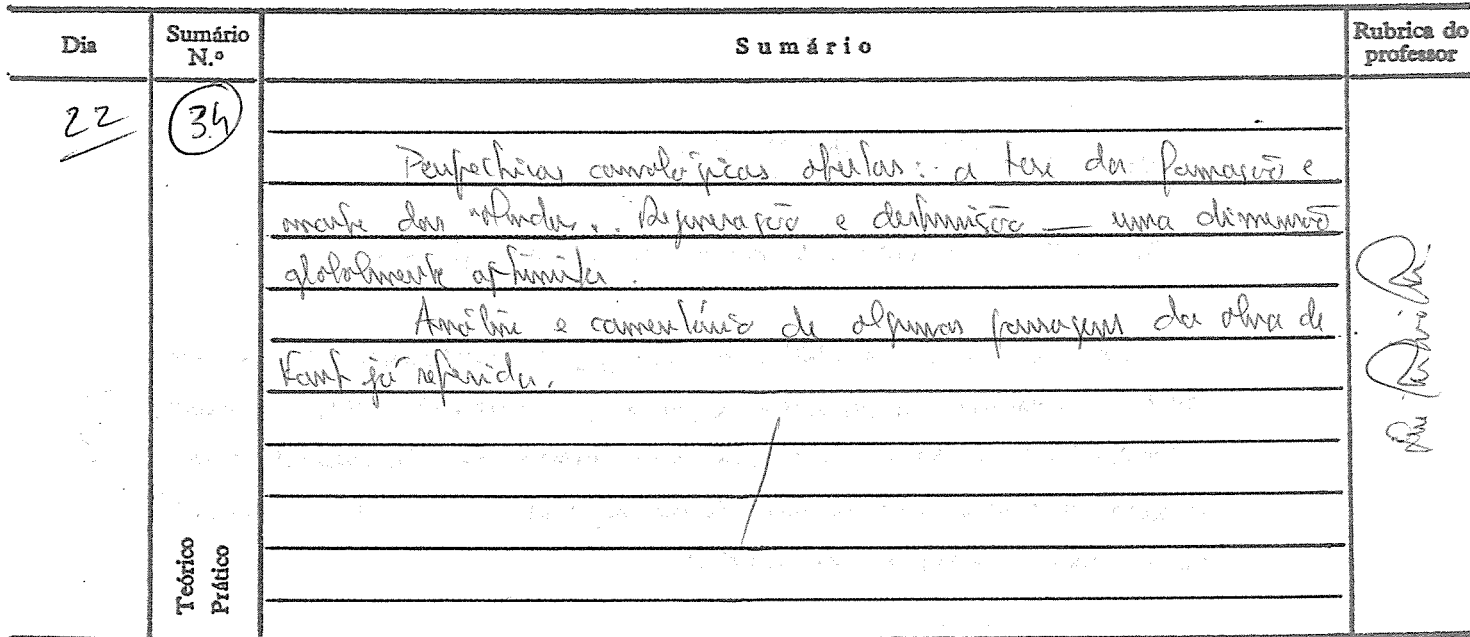 Dia
Sumário N.º
Sumário
Rubrica do professor
22
34
Perspectivas cosmológicas abertas: a tese da formação e
morte dos Mundos. Regeneração e destruição — uma dimensão
globalmente optimista.
Análise e comentário de algumas passagens da obra de
Kant já referida.
Teórico
Prático